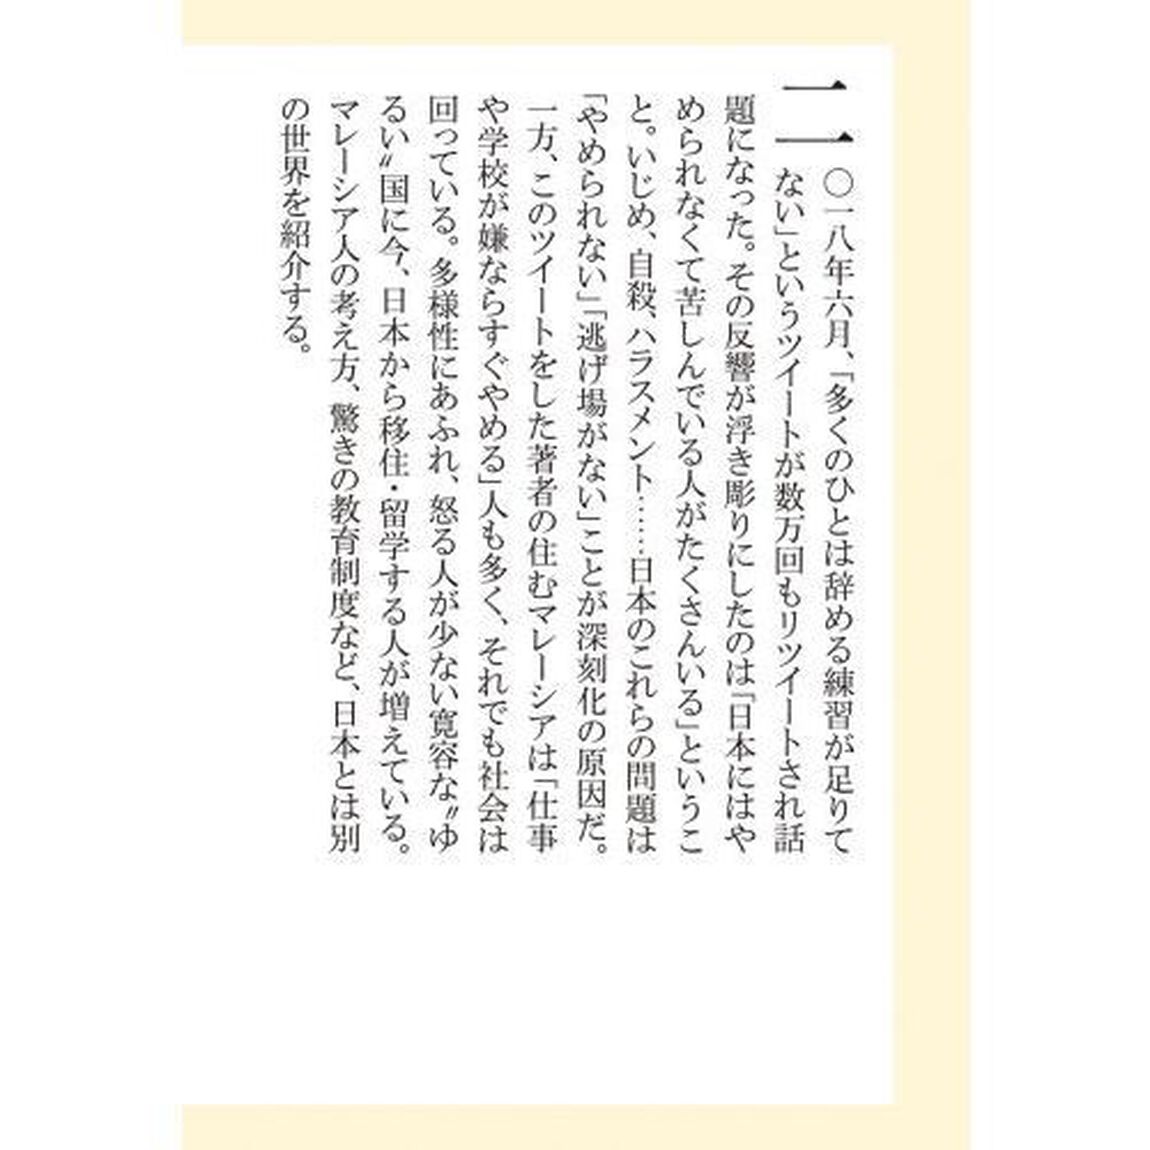 二〇一八年六月、「多くのひとは辞める練習が足りて
ない」というツイートが数万回もリツイートされ話
題になった。その反響が浮き彫りにしたのは「日本にはや
められなくて苦しんでいる人がたくさんいる」というこ
と。いじめ、自殺、ハラスメント……日本のこれらの問題は
「やめられない」「逃げ場がない」ことが深刻化の原因だ。
一方、このツイートをした著者の住むマレーシアは「仕事
や学校が嫌ならすぐやめる」人も多く、それでも社会は
回っている。多様性にあふれ、怒る人が少ない寛容な〝ゆ
るい〟国に今、日本から移住・留学する人が増えている。
マレーシア人の考え方、驚きの教育制度など、日本とは別
の世界を紹介する。